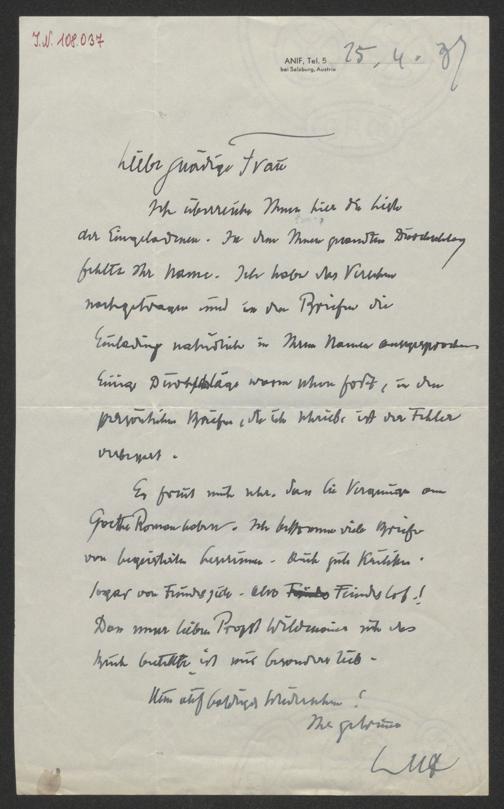 J.N. 108.037
ANIF, Tel. 5
bei Salzburg, Austria
25. 4. 37
Liebe gnädige Frau
Ich überreiche Ihnen hier die Liste
der Eingeladenen. In dem Ihnen gesandten Durchschlag
fehlte Ihr Name. Ich habe das Versehen
nachgetragen und in den Briefen die
Einladung natürlich in Ihrem Namen ausgesprochen
Einige Durchschläge waren schon fort, in den
persönlichen Briefen, die ich schrieb ist der Fehler
verbessert.
Es freut mich sehr, dass Sie Vergnügen am
Goethe Roman haben. Ich bekomme viele Briefe
von begeisterten Leserinnen. Auch gute Kritiken.
sogar von Feindesseite - also Feindeslob!
Dass unser lieber Propst Wildenauer sich das
Buch bestellte ist mir besonders lieb -
Nun auf baldiges Wiedersehen!
Ihr getreuer